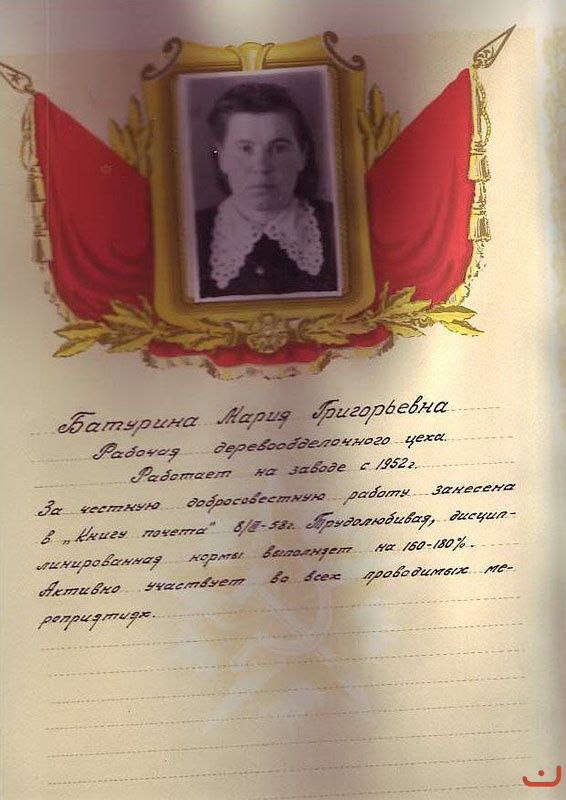 Батурина Мария Григорьевна
Рабочая деревообделочного цеха
Работает на заводе с 1952г.
За честную добросовестную работу занесена
в „Книгу почета" 8/III-58г. Трудолюбивая, дисцип-
линированная нормы выполняет на 160-180%.
Активно участвует во всех проводимых ме-
роприятиях.